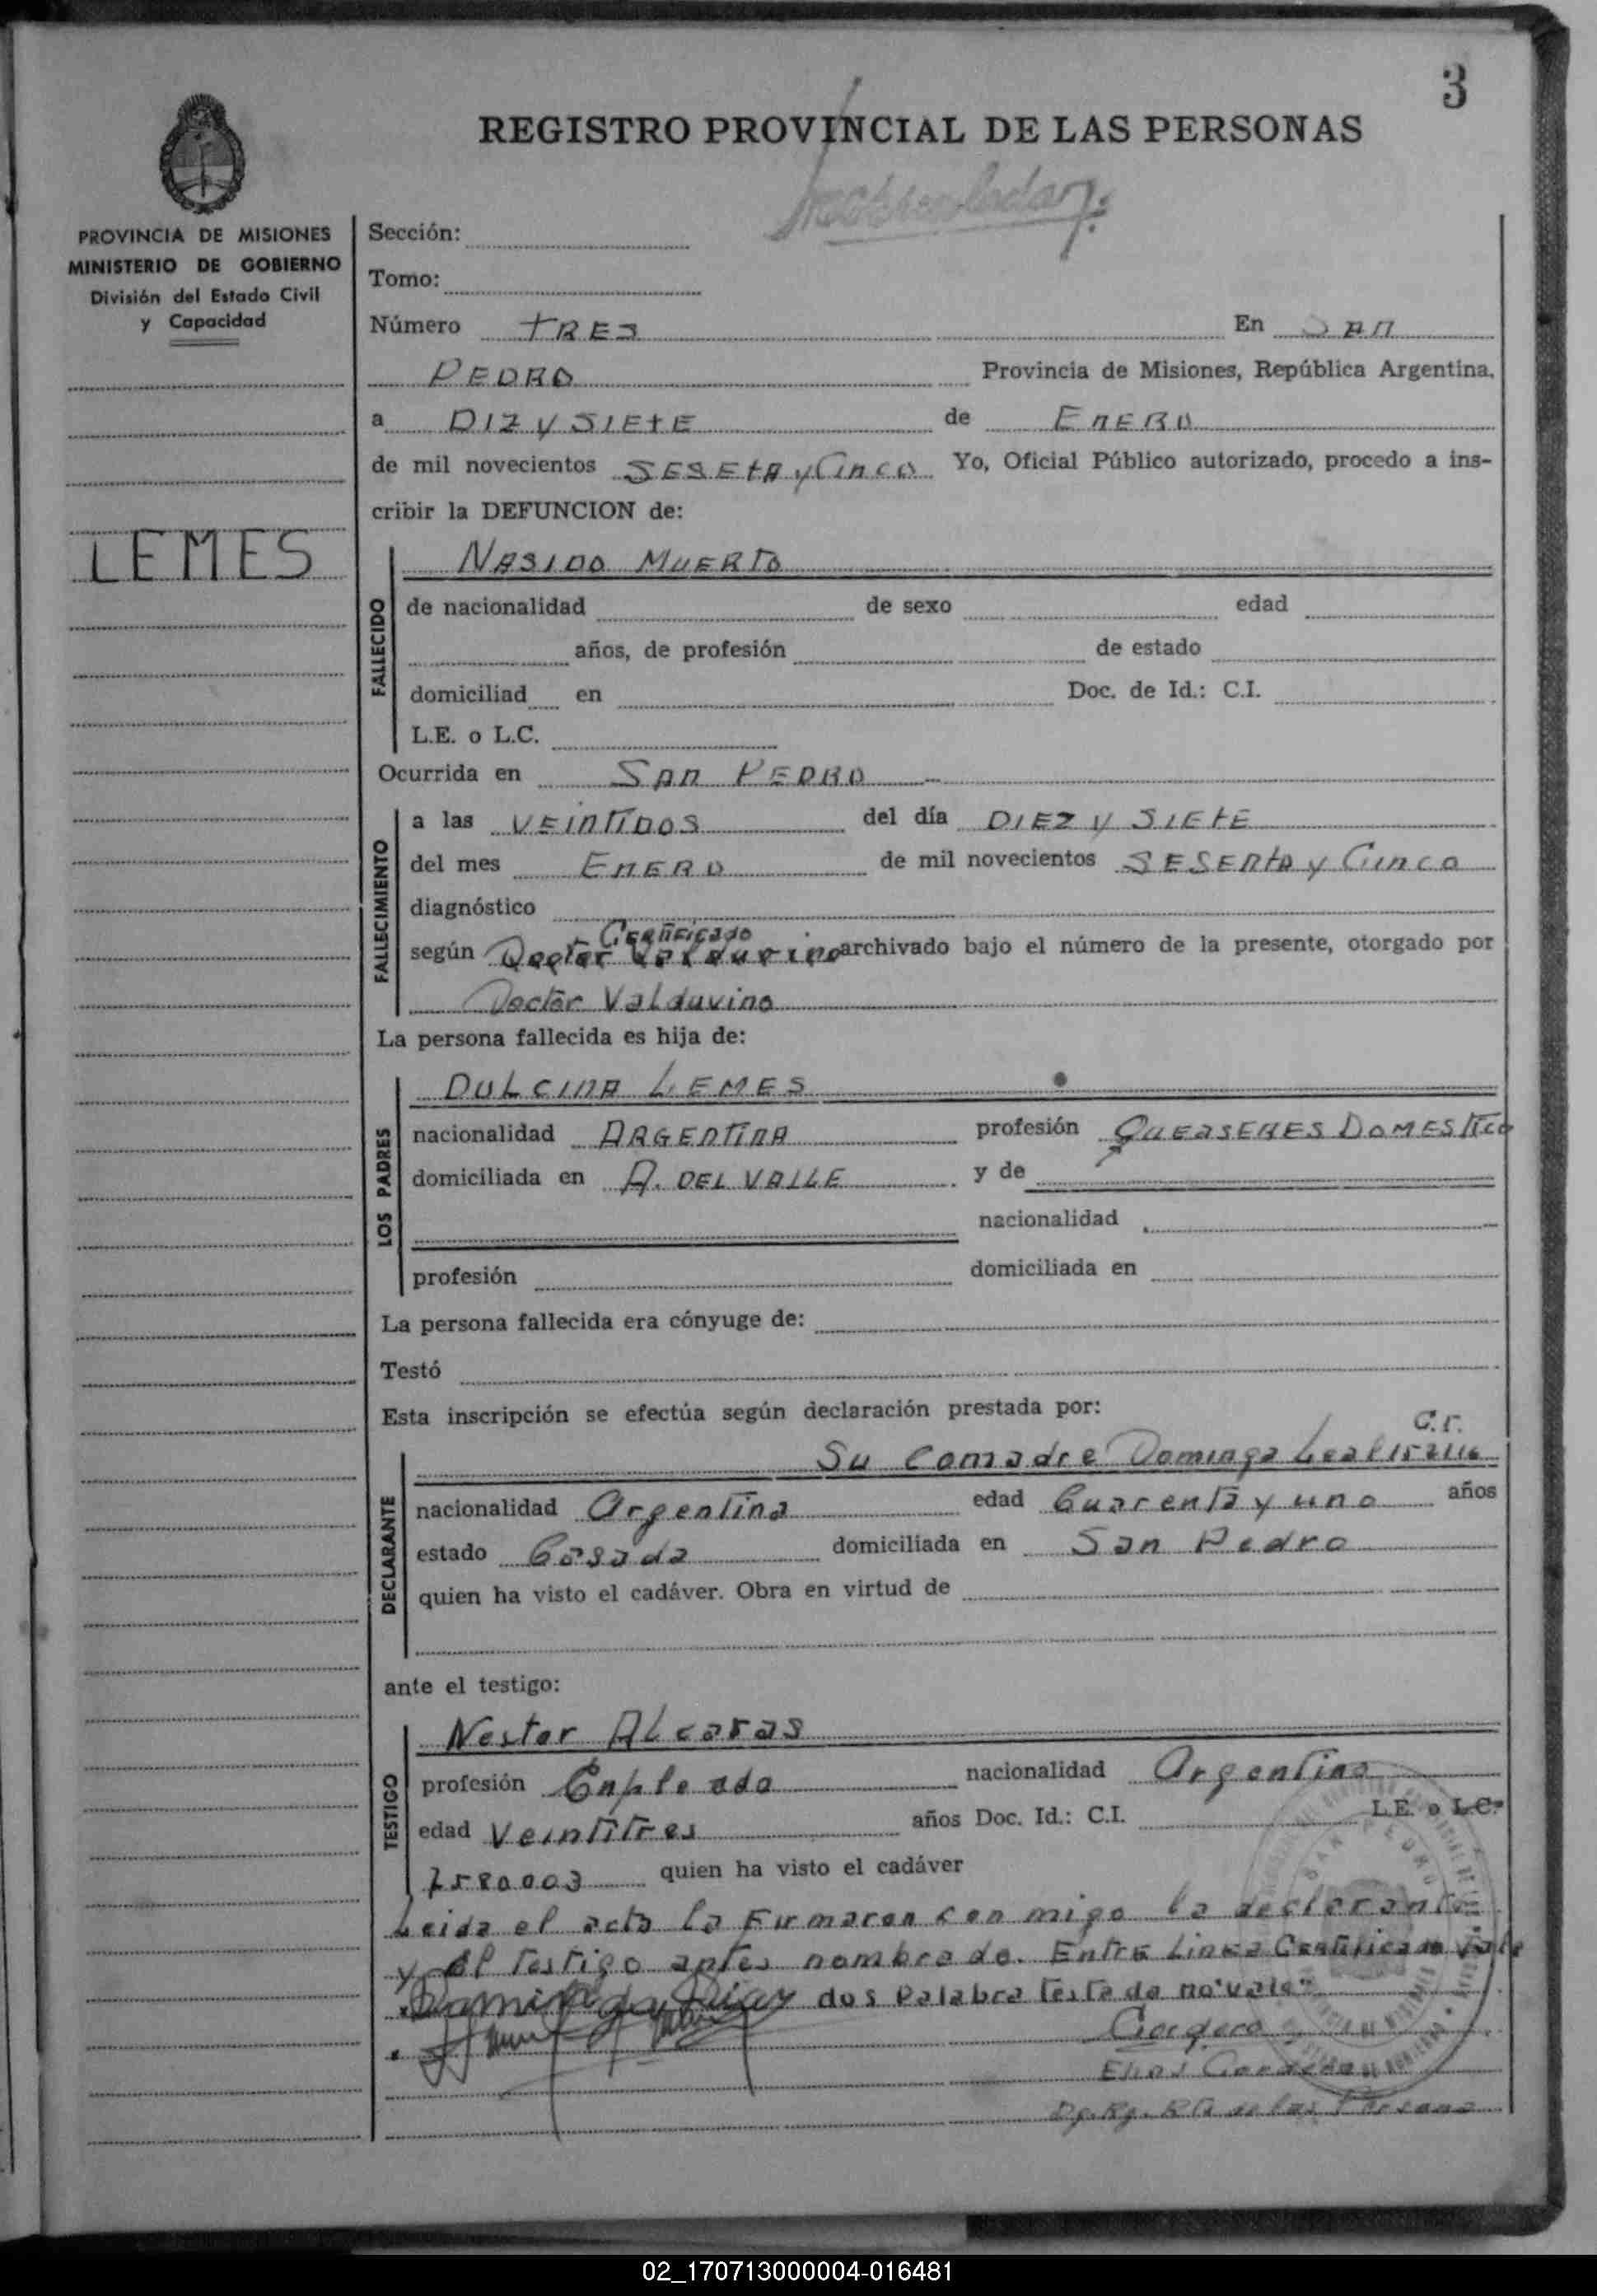 3
REGISTRO PROVINCIAL DE LAS PERSONAS
PROVINCIA DE MISIONES
MINISTERIO DE GOBIERNO
División del Estado Civil
y Capacidad
LEMES
Sección:
Tomo:
Número TRES En SAN
PEDRO Provincia de Misiones, República Argentina,
a DIZ Y SIETE de ENERO
de mil novecientos SESETA y Cinco Yo, Oficial Público autorizado, procedo a ins-
cribir la DEFUNCION de:
FALLECIDO
NASIDO MUERTO
de nacionalidad de sexo edad
años, de profesión de estado
domiciliad en Doc. de Id.: C.I.
L.E. o L.C.
Ocurrida en SAN PEDRO
FALLECIMIENTO
a las VEINTIDOS del día DIEZ Y SIETE
del mes ENERO de mil novecientos SESENTA y Cinco
diagnóstico
Certificado
según Doctor Valduvino archivado bajo el número de la presente, otorgado por
Doctor Valduvino
La persona fallecida es hija de:
LOS PADRES
DULCINA LEMES
nacionalidad ARGENTINA profesión QUEASERES DOMESTICO
domiciliada en A. DEL VALLE y de
nacionalidad
profesión domiciliada en
La persona fallecida era cónyuge de:
Testó
Esta inscripción se efectúa según declaración prestada por:
DECLARANTE
Su Comadre Dominga Leal
nacionalidad Argentina edad Cuarenta y uno años
estado Casada domiciliada en San Pedro
quien ha visto el cadáver. Obra en virtud de
ante el testigo:
TESTIGO
Nestor ALcaras
profesión Enpleado nacionalidad Argentino
edad Veintitres años Doc. Id.: C.I. L.E. o L.C.
7580003 quien ha visto el cadáver
Leida el acta la Firmaron con migo la declarante
y el testigo antes nombrado. Entre Linea Certificado Vale
dos Palabra testado no "vale"
Cordero
Elias Cordero
02_170713000004-016481